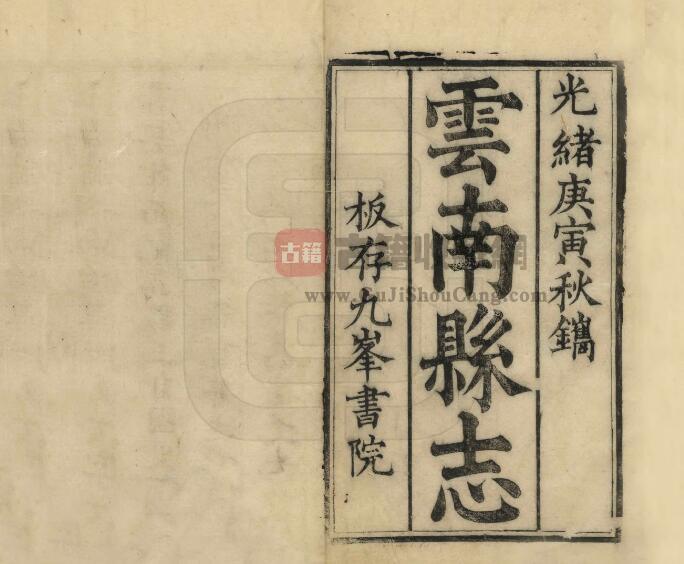 光緒庚寅秋鐫
雲南縣志
板存九峯書院
古籍
古籍收藏網
www.GuJiShouCang.com